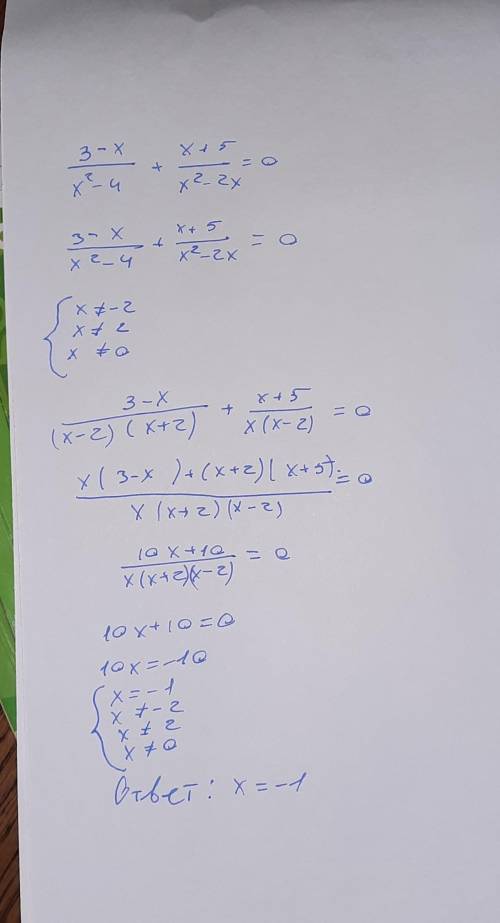 (3-x)/(x²-4) + (x+5)/(x²-2x) = 0
(3-x)/(x²-4) + (x+5)/(x²-2x) = 0
{ x ≠ -2
x ≠ 2
x ≠ 0
(3-x)/((x-2)(x+2)) + (x+5)/(x(x-2)) = 0
(x(3-x)+(x+2)(x+5))/(x(x+2)(x-2)) = 0
(10x+10)/(x(x+2)(x-2)) = 0
10x+10=0
10x=-10
{ x=-1
x ≠ -2
x ≠ 2
x ≠ 0
Ответ: x=-1